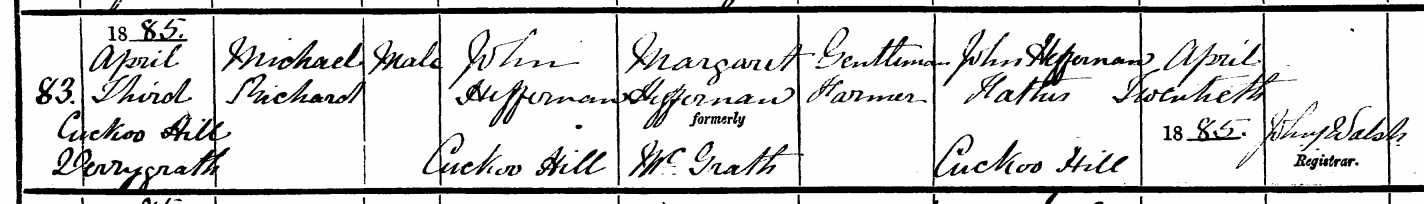 1885.
April Michael Male John Margaret Gentleman John Heffernan April
83. Third Richard Heffernan Heffernan Farmer Father Twentieth
formerly
Cuckoo Hill 1885. John Walsh
Derrygrath Cuckoo Hill Mc Grath Cuckoo Hill Registrar.